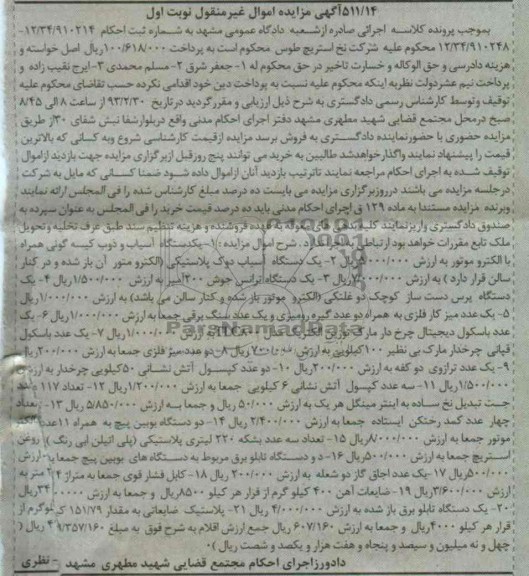 ۵۱۱/۱۴آگهی مزایده اموال غیرمنقول نوبت اول
بموجب پرونده کلاسه اجرائی صادره ازشعبه دادگاه عمومی مشهد به شماره ثبت احکام ۱۲/۳۴/۹۱۰۲۱۴-
۱۲/۳۴/۹۱۰۲۴۸ محکوم علیه شرکت نخ استریچ طوس محکوم است به پرداخت ۱۰۰/۶۱۸/۰۰۰ ریال اصل خواسته و
هزینه دادرسی و حق الوکاله و خسارت تاخیر در حق محکوم له ۱- جعفر شرق ۲- مسلم محمدی ۳-ایرج نقیب زاده و
پرداخت نیم عشردولت نظربه اینکه محکوم علیه نسبت به پرداخت دین خود اقدامی نکرده حسب تقاضای محکوم علیه
توقیف وتوسط کارشناس رسمی دادگستری به شرح ذیل ارزیابی و مقررگردید درتاریخ ۹۳/۲/۳۰ از ساعت ۸ الی ۸/۴۵
صبح درمحل مجتمع قضایی شهید مطهری مشهد دفتر اجرای احکام مدنی واقع دربلوارشفا نبش شفای ۳۰از طریق
مزایده حضوری با حضورنماینده دادگستری به فروش برسد مزایده ازقیمت کارشناسی شروع وبه کسانی که بالاترین
قیمت را پیشنهاد نمایند واگذارخواهدشد طالبین به خرید می توانند پنج روزقبل ازبرگزاری مزایده جهت بازدید ازاموال
توقیف شده به اجرای احکام مراجعه نمایند تاترتیب بازدید آنان ازاموال داده شود ضمنا کسانی که مایل به شرکت
درجلسه مزایده می باشند درروزبرگزاری مزایده می بایست ده درصد مبلغ کارشناس شده را فی المجلس ارائه نمایند
وبرنده مزایده مستندا به ماده ۱۲۹ ق اجرای احکام مدنی باید ده درصد قیمت خرید را فی المجلس به عنوان سپرده به
صندوق دادگستری واریزنمایند کلیه فروشنده و هزینه تنظیم سند طبق عرف تخلیه وتحویل
ملک تابع مقررات خواهد بود ارتباطی ندارد. شرح اموال مزایده: ۱-یکدستگاه آسیاب و ذوب کیسه گونی همراه
با الکترو موتور به ارزش ریال ۲- یک دستگاه آسیاب دوک پلاستیکی (الکترو متور آن باز شده و در کنار
سالن قرار دارد) به ارزش ریال ۳- یک دستگاه ترانس جوش ۲۰۰آمپر به ارزش ۱/۵۰۰/۰۰۰ ریال ۴- یک
دستگاه پرس دست ساز کوچک دو غلتکی (الکترو موتور باز شده و کنار سالن می باشد) به ارزش ۱/۰۰۰/۰۰۰ریال
۵- یک عدد میز کار فلزی به همراه دو عدد گیره رومیزی و یک عدد سنگ برقی جمعا به ارزش ۱/۰۰۰/۰۰۰ریال ۶- یک
عدد باسکول دیجیتال چرخ دار مارک توزین ارزش ۱/۰۰۰/۰۰۰ریال ۷- یک عدد باسکول
قپانی چرخدار مارک بی نظیر ۱۰۰کیلویی به ارزش ریال ۸- دو عدد میز فلزی جمعا به ارزش ۲۰۰/۰۰۰ریال
۹- یک عدد ترازوی دو کفه به ارزش ۲۰۰/۰۰۰ریال ۱۰- دو عدد کپسول آتش نشانی ۵۰کیلویی چرخدار به ارزش
۱/۵۰۰/۰۰۰ریال ۱۱- سه عدد کپسول آتش نشانی ۶ کیلویی جمعا به ارزش ۱/۲۰۰/۰۰۰ریال ۱۲- تعداد ۱۱۷ عدد
جت تبدیل نخ ساده به اینتر مینگل هر یک به ارزش ۵۰/۰۰۰ ریال و جمعا به ارزش ۵/۸۵۰/۰۰۰ ریال ۱۳- تعداد
چهار عدد کمد رختکن ایستاده جمعا به ارزش ۲/۴۰۰/۰۰۰ ریال ۱۴- دو دستگاه بوبین پیچ به همراه ۱۱عدد
موتور جمعا به ارزش ۸/۰۰۰/۰۰۰ریال ۱۵- تعداد سه عدد بشکه ۲۲۰ لیتری پلاستیکی (پلی اتیلن آبی رنگ) روغن
استریچ جمعا به ارزش ۵۰۰/۰۰۰ریال ۱۶- دو دستگاه تابلو برق مربوط به دستگاه های بوبین پیچ جمعا به ارزش
۵۰۰/۰۰۰ریال ۱۷-یک عدد اجاق گاز دو شعله به ارزش ۲۰۰/۰۰۰ ریال ۱۸- کابل فشار قوی جمعا به متراژ متر به
ارزش ۳/۶۰۰/۰۰۰ریال ۱۹- ضایعات آهن ۴۰۰ کیلو گرم از قرار هر کیلو ۸۵۰۰ریال و جمعا به ارزش ریال
۲۰- یک دستگاه تابلو برق باز شده به ارزش ۴/۰۰۰/۰۰۰ ریال ۲۱- پلاستیک ضایعاتی به مقدار ۱۵۱/۷۹ کیلوگرم از
قرار هر کیلو ۴۰۰۰ریال و جمعا به ارزش ۶۰۷/۱۶۰ ریال جمع ارزش اقلام به شرح فوق به مبلغ ۴۹/۳۵۷/۱۶۰ ریال (
چهل و نه میلیون و سیصد و پنجاه و هفت هزار و یکصد و شصت ریال)
دادورزاجرای احکام مجتمع قضایی شهید مطهری مشهد - نظری